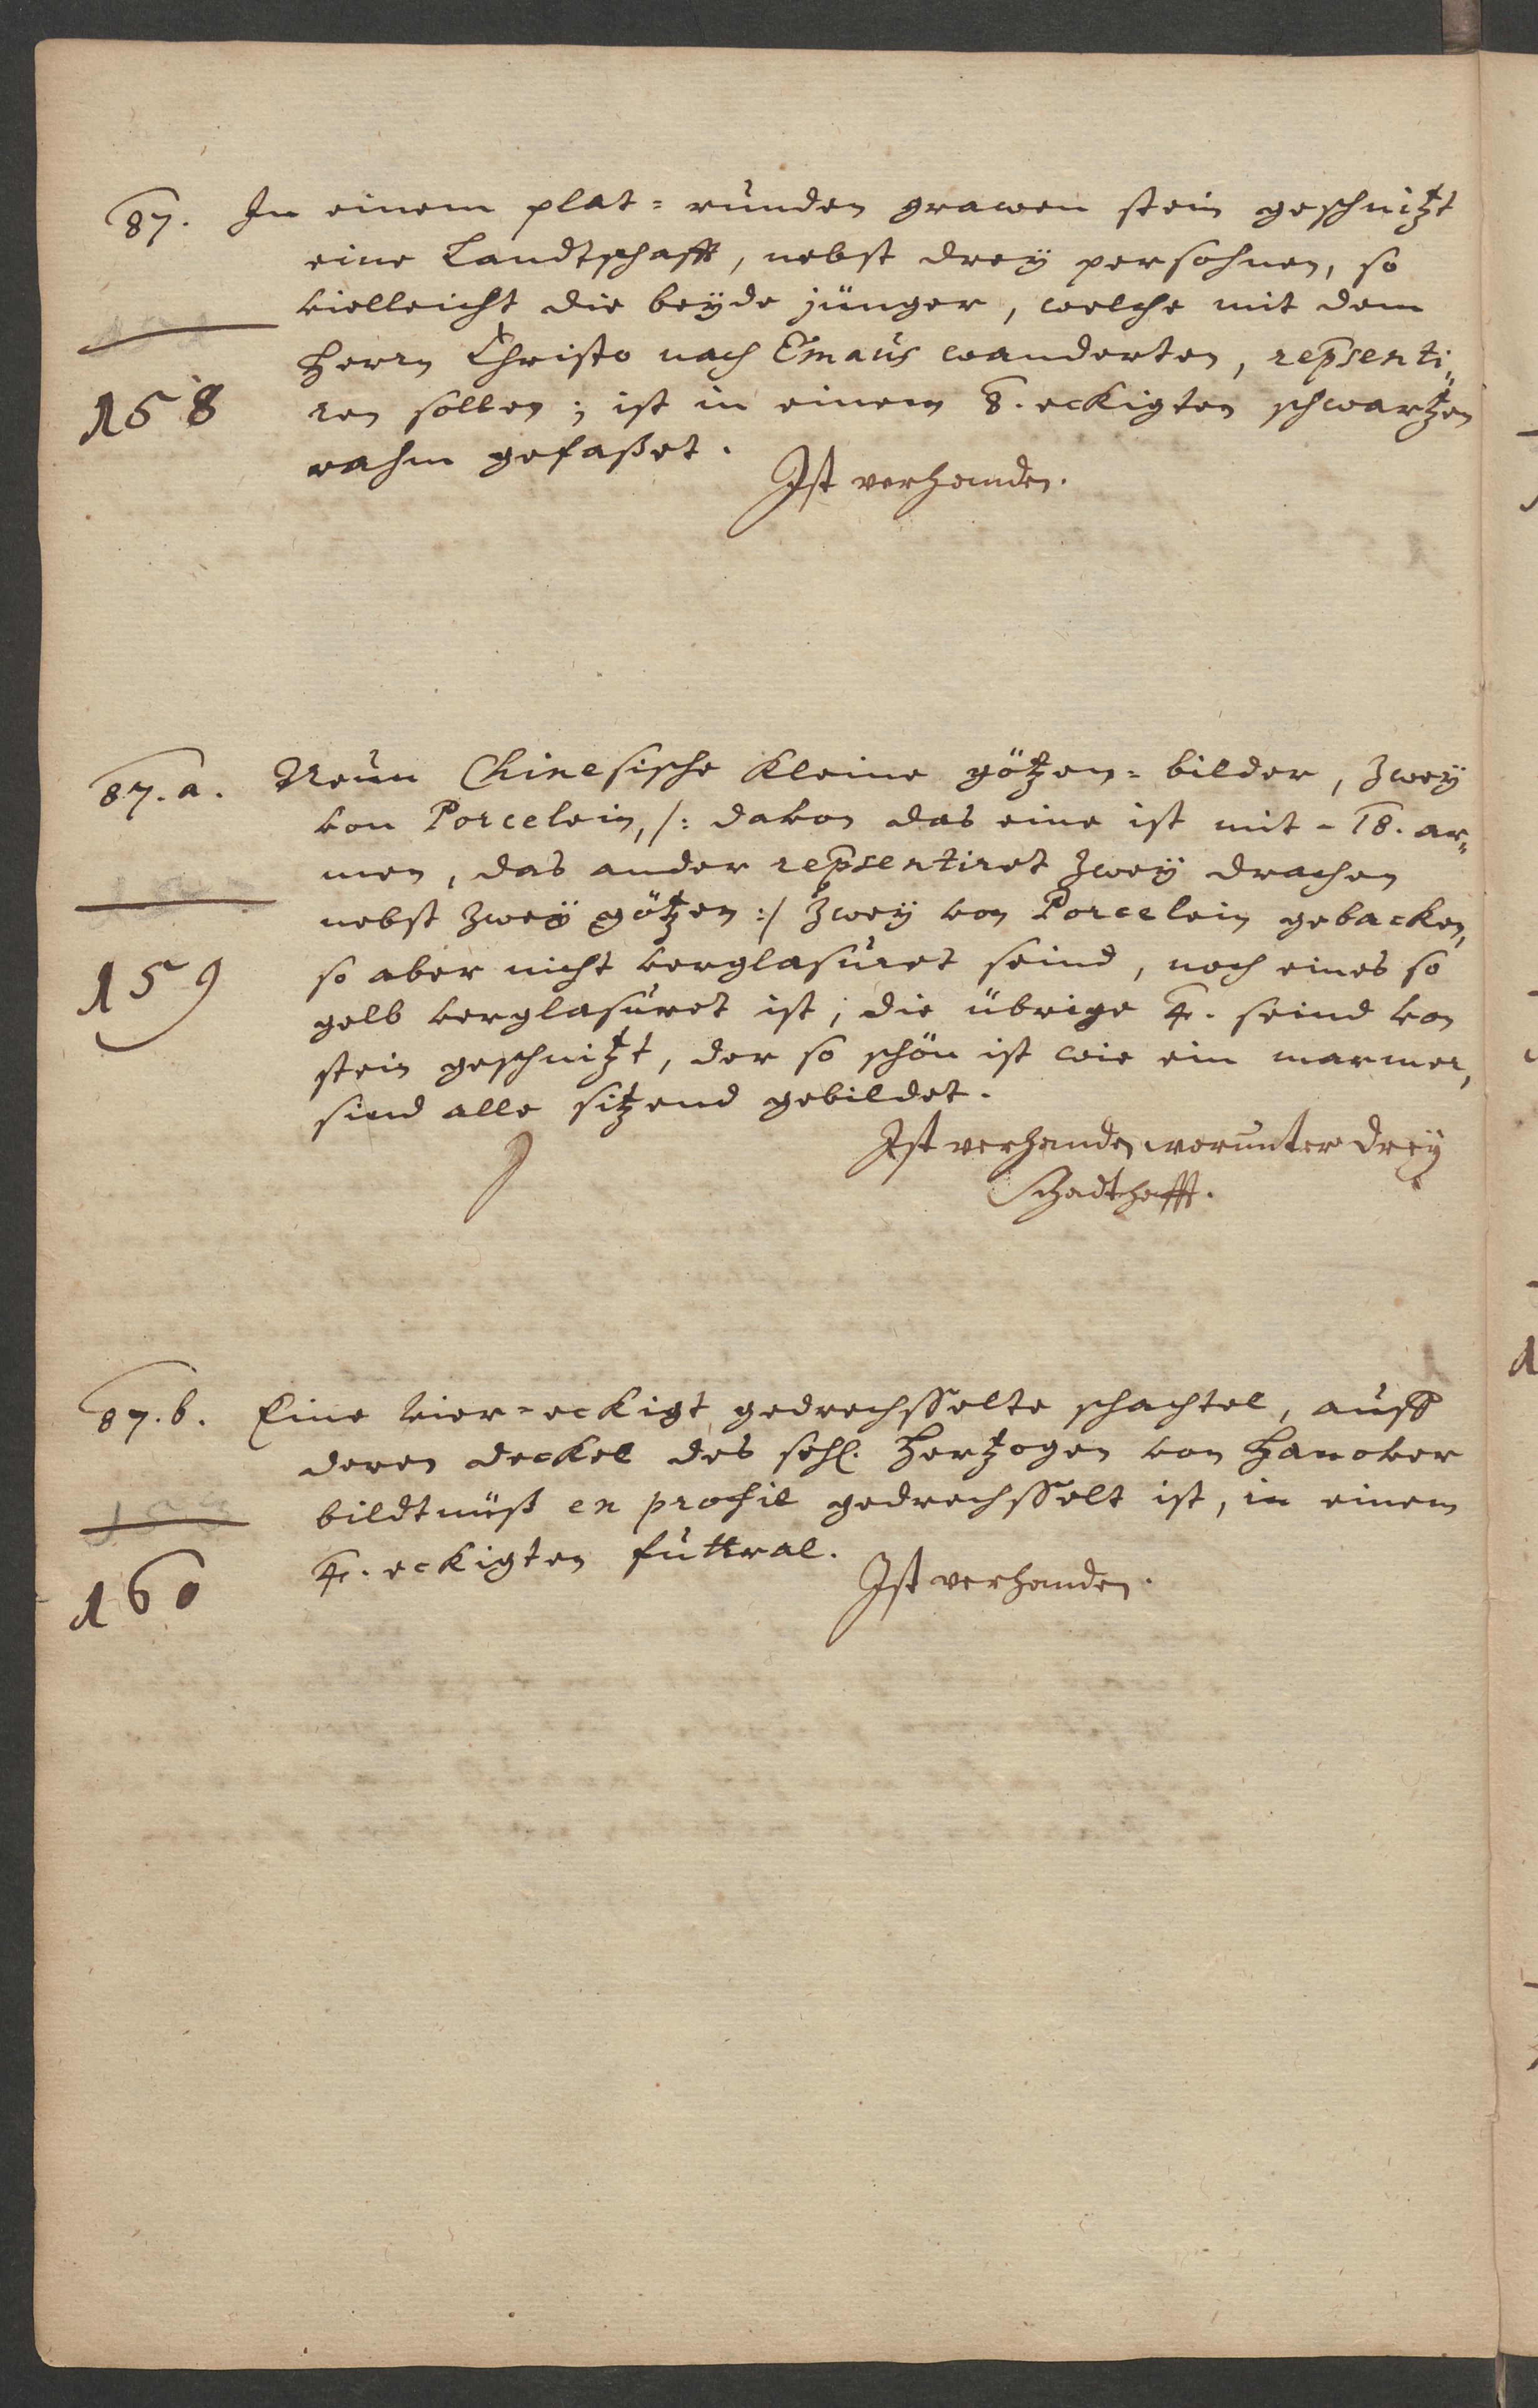 87. In einem plat=runden grawen stein geschnitzt
eine Landtschafft, nebst dreÿ persohnen, so
vielleicht die beÿde jünger, welche mit dem
Herrn Christo nach Emaus wanderten, rep̄senti=
158
ren sollen; ist in einem 8.eckigten schwartzen
rahm gefaßet.
Ist verhanden.
87.a. Neun Chinesische kleine götzen=bilder, zweÿ
von Porcelein, /: davon das eine ist mit - 18. ar=
men, das ander rep̄sentiret zweÿ drachen
nebst zweÿ götzen :/ zweÿ von Porcelein gebacken,
159
so aber nicht verglasuret seind, noch eines so
gelb verglasuret ist, die übrige 4. seind von
stein geschnitzt, der so schön ist wie ein marmer,
sind alle sitzend gebildet.
Ist verhanden worunter dreÿ
Schadthafft.
87.b. Eine vier=eckigt gedrechsselte schachtel, auff
deren deckel des sehl. Hertzogen von Hanover
bildtnüß en profil gedrechsselt ist, in einem
160
4.eckigten futtral.
Ist verhanden.